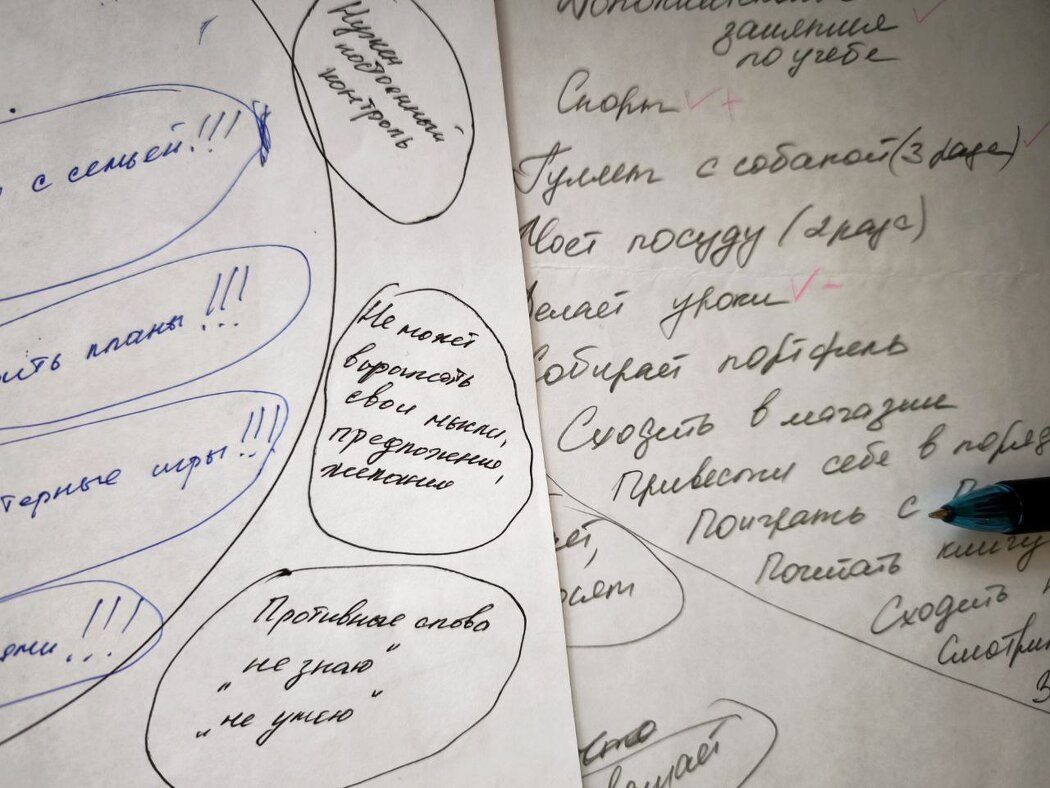 с семьей!!!
планы!!!
игры!!!
!!!
Нужен
постоянный
контроль
Не может
выражать
свои мысли,
предложение,
желание
Противные слова
"не знаю"
"не умею"
занятия
по учебе
Спорт
Гуляет с собакой (3 раза)
Моет посуду (2 раза)
Делает уроки
Собирает портфель
Сходить в магазин
Привести себя в поряд
Поиграть с
Почитать книгу
Сходить
Смотри